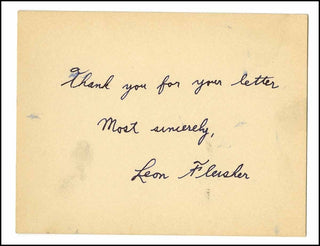 Thank you for your letter
Most sincerely,
Leon Fleisher